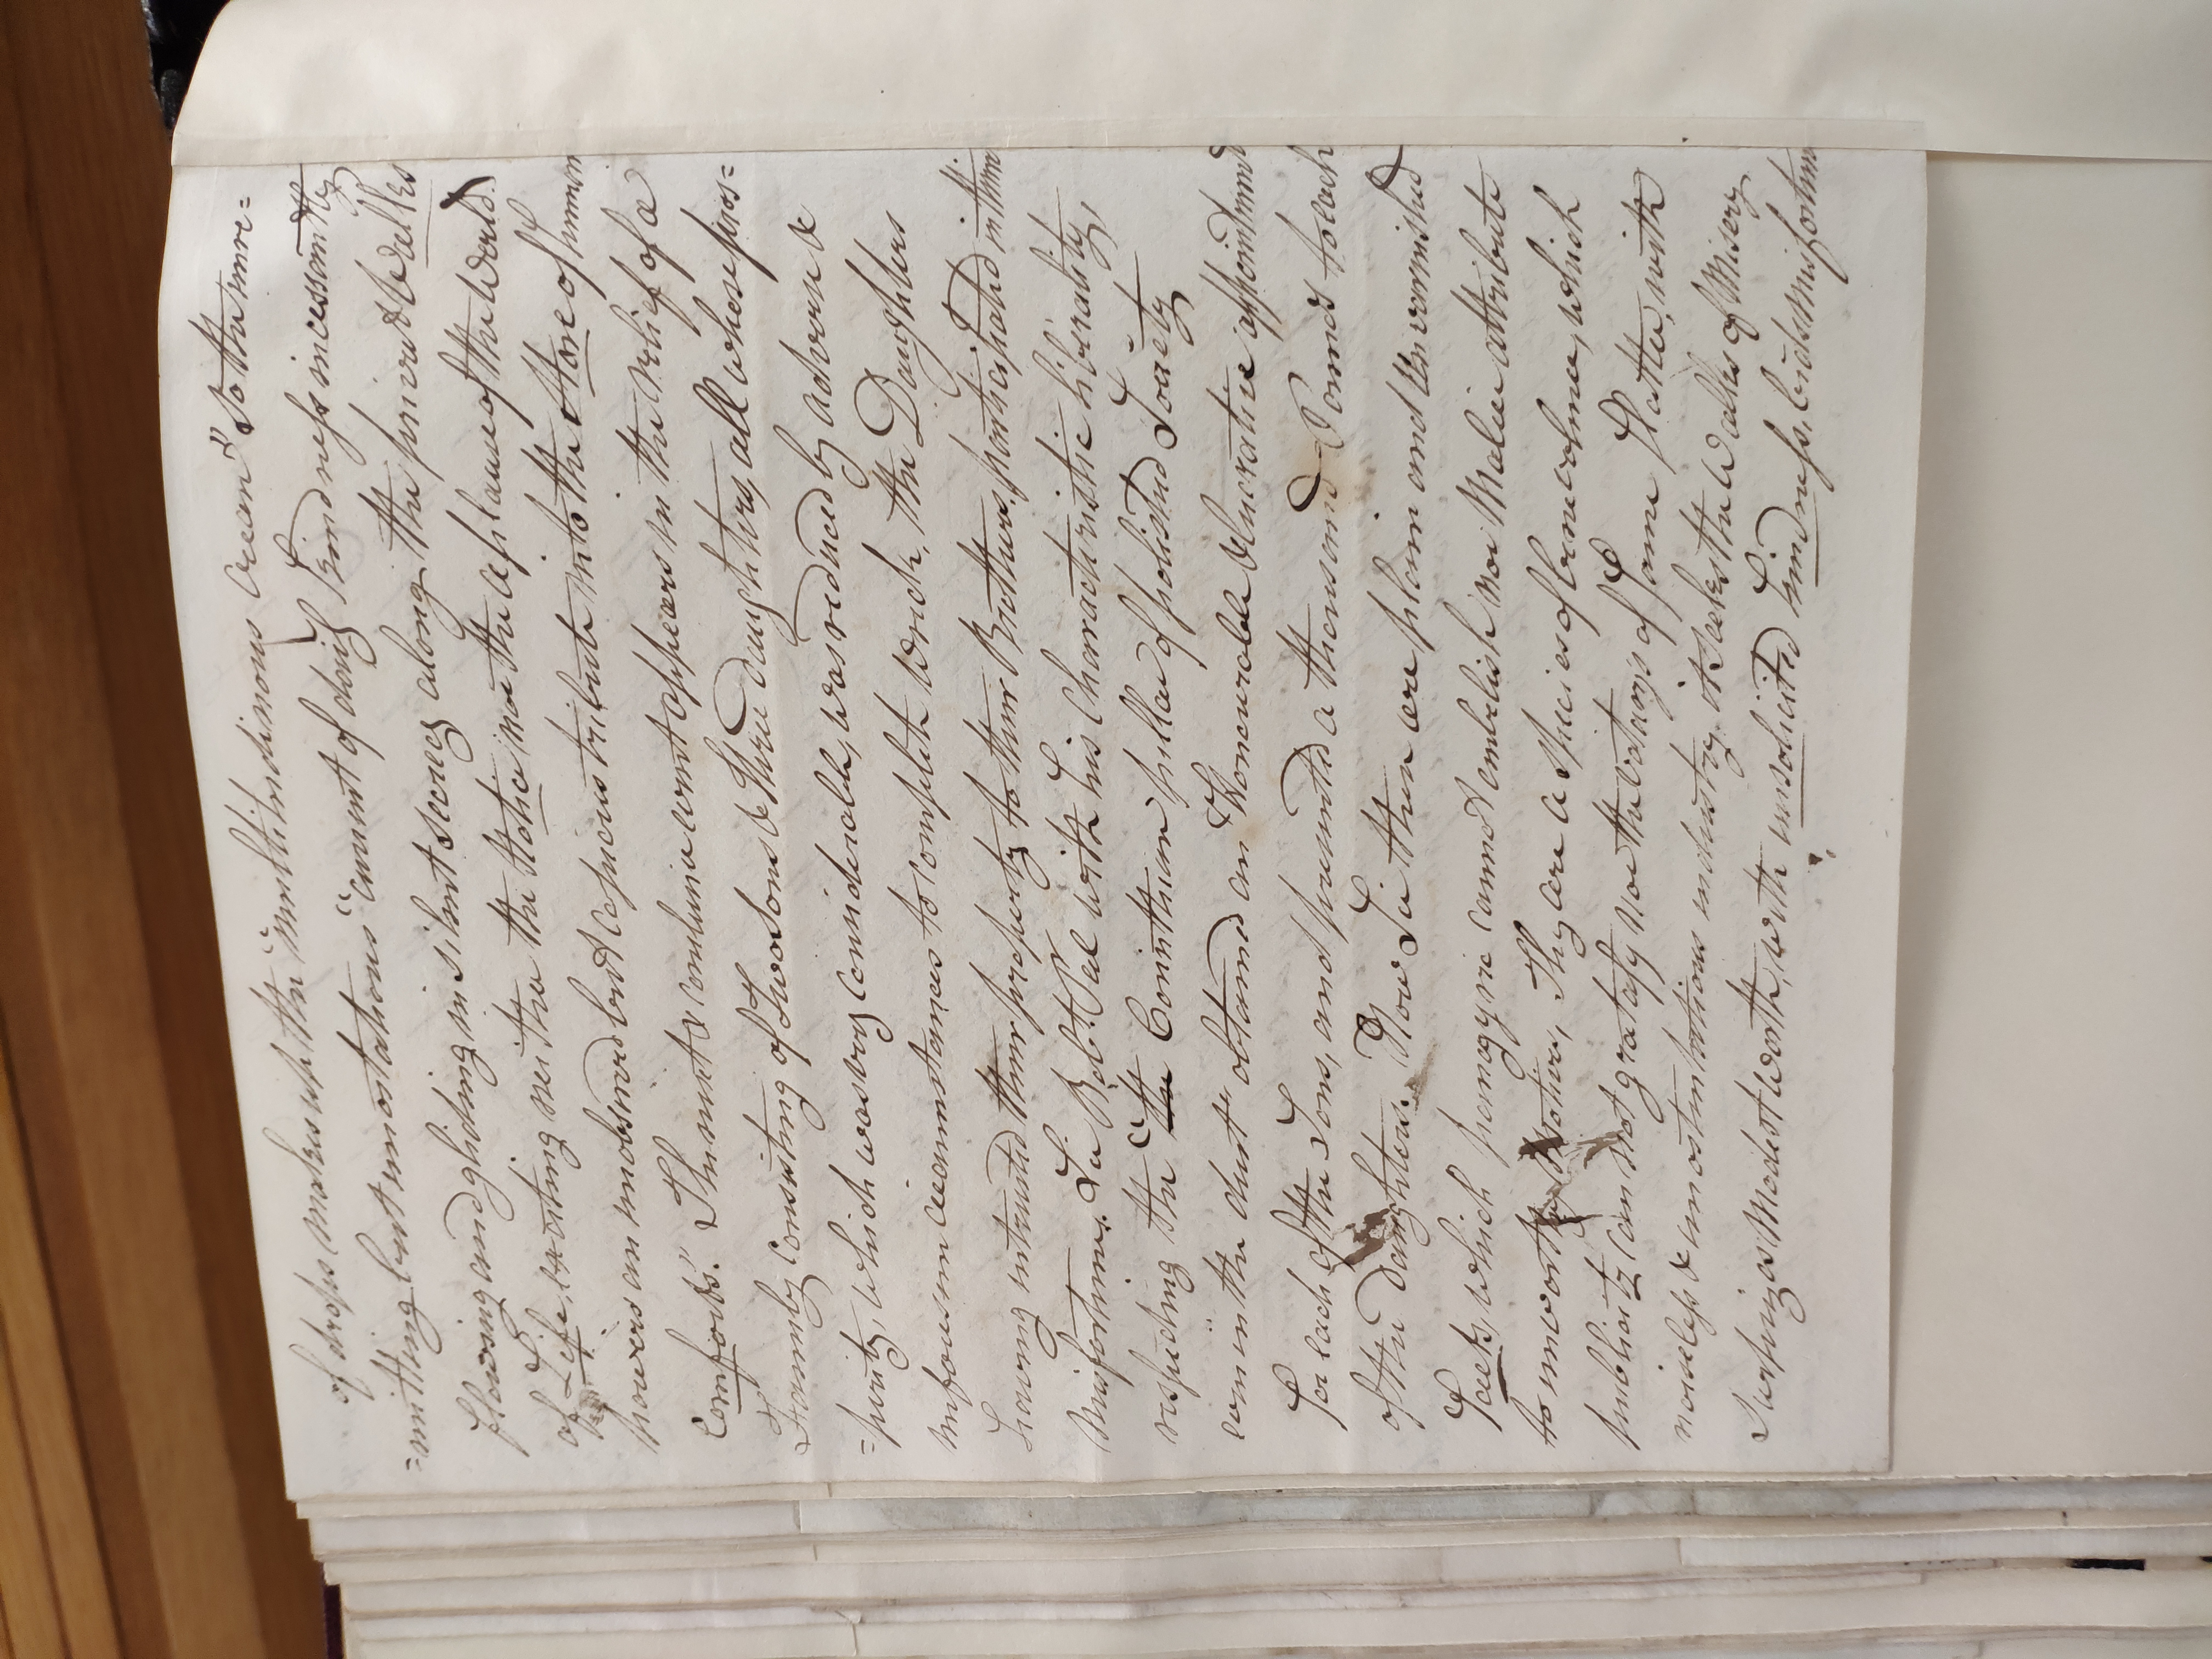 of drops makes up the "multitudinous Ocean" so the unre=
=mitting but unostatious "current of doing kind ness incessantly
flowing and gliding in silent secrecy along the private Walks
of Life, exciting neither the Notice nor the applause of the World.
pours an unobserved but copious tribute into the Store of human
Comforts." The next & conclusive event appears in the relief of a
Family consisting of two Sons & three daughters, all whose pros=
=perity, which was very considerable, was reduced by adverse &
unforseen circumstances to complete wreck, the Daughters
having intrusted their property to their Brothers, participated in their
Misfortune. Sir Robt. Peel with his characteristic liberality,
respecting the "the Corinthian pillar of polished Society
even in the dust" obtained an Honourable & lucrative appointment
for each of the Sons, and presented a thousand Pounds to each
of the daughters. Now Sir these are plain and Unvarnished
Facts, which panegyric cannot embelish, nor Malice attribute
to unworthy Motives, They are a species of benevolence, which
publicity can not gratify nor the votaries of Fame flatter, with
noiseless & unostentatious industry, it seeks the Walks of Misery
surprizes Modest worth, with unsolicited kindness, bids Misfortune